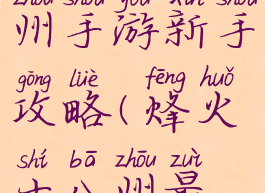 zhōu shǒu yóu xīn shǒu
州手游新手
gōng lüè fēng huǒ
攻略(烽火
shí bā zhōu zuì
十八州最